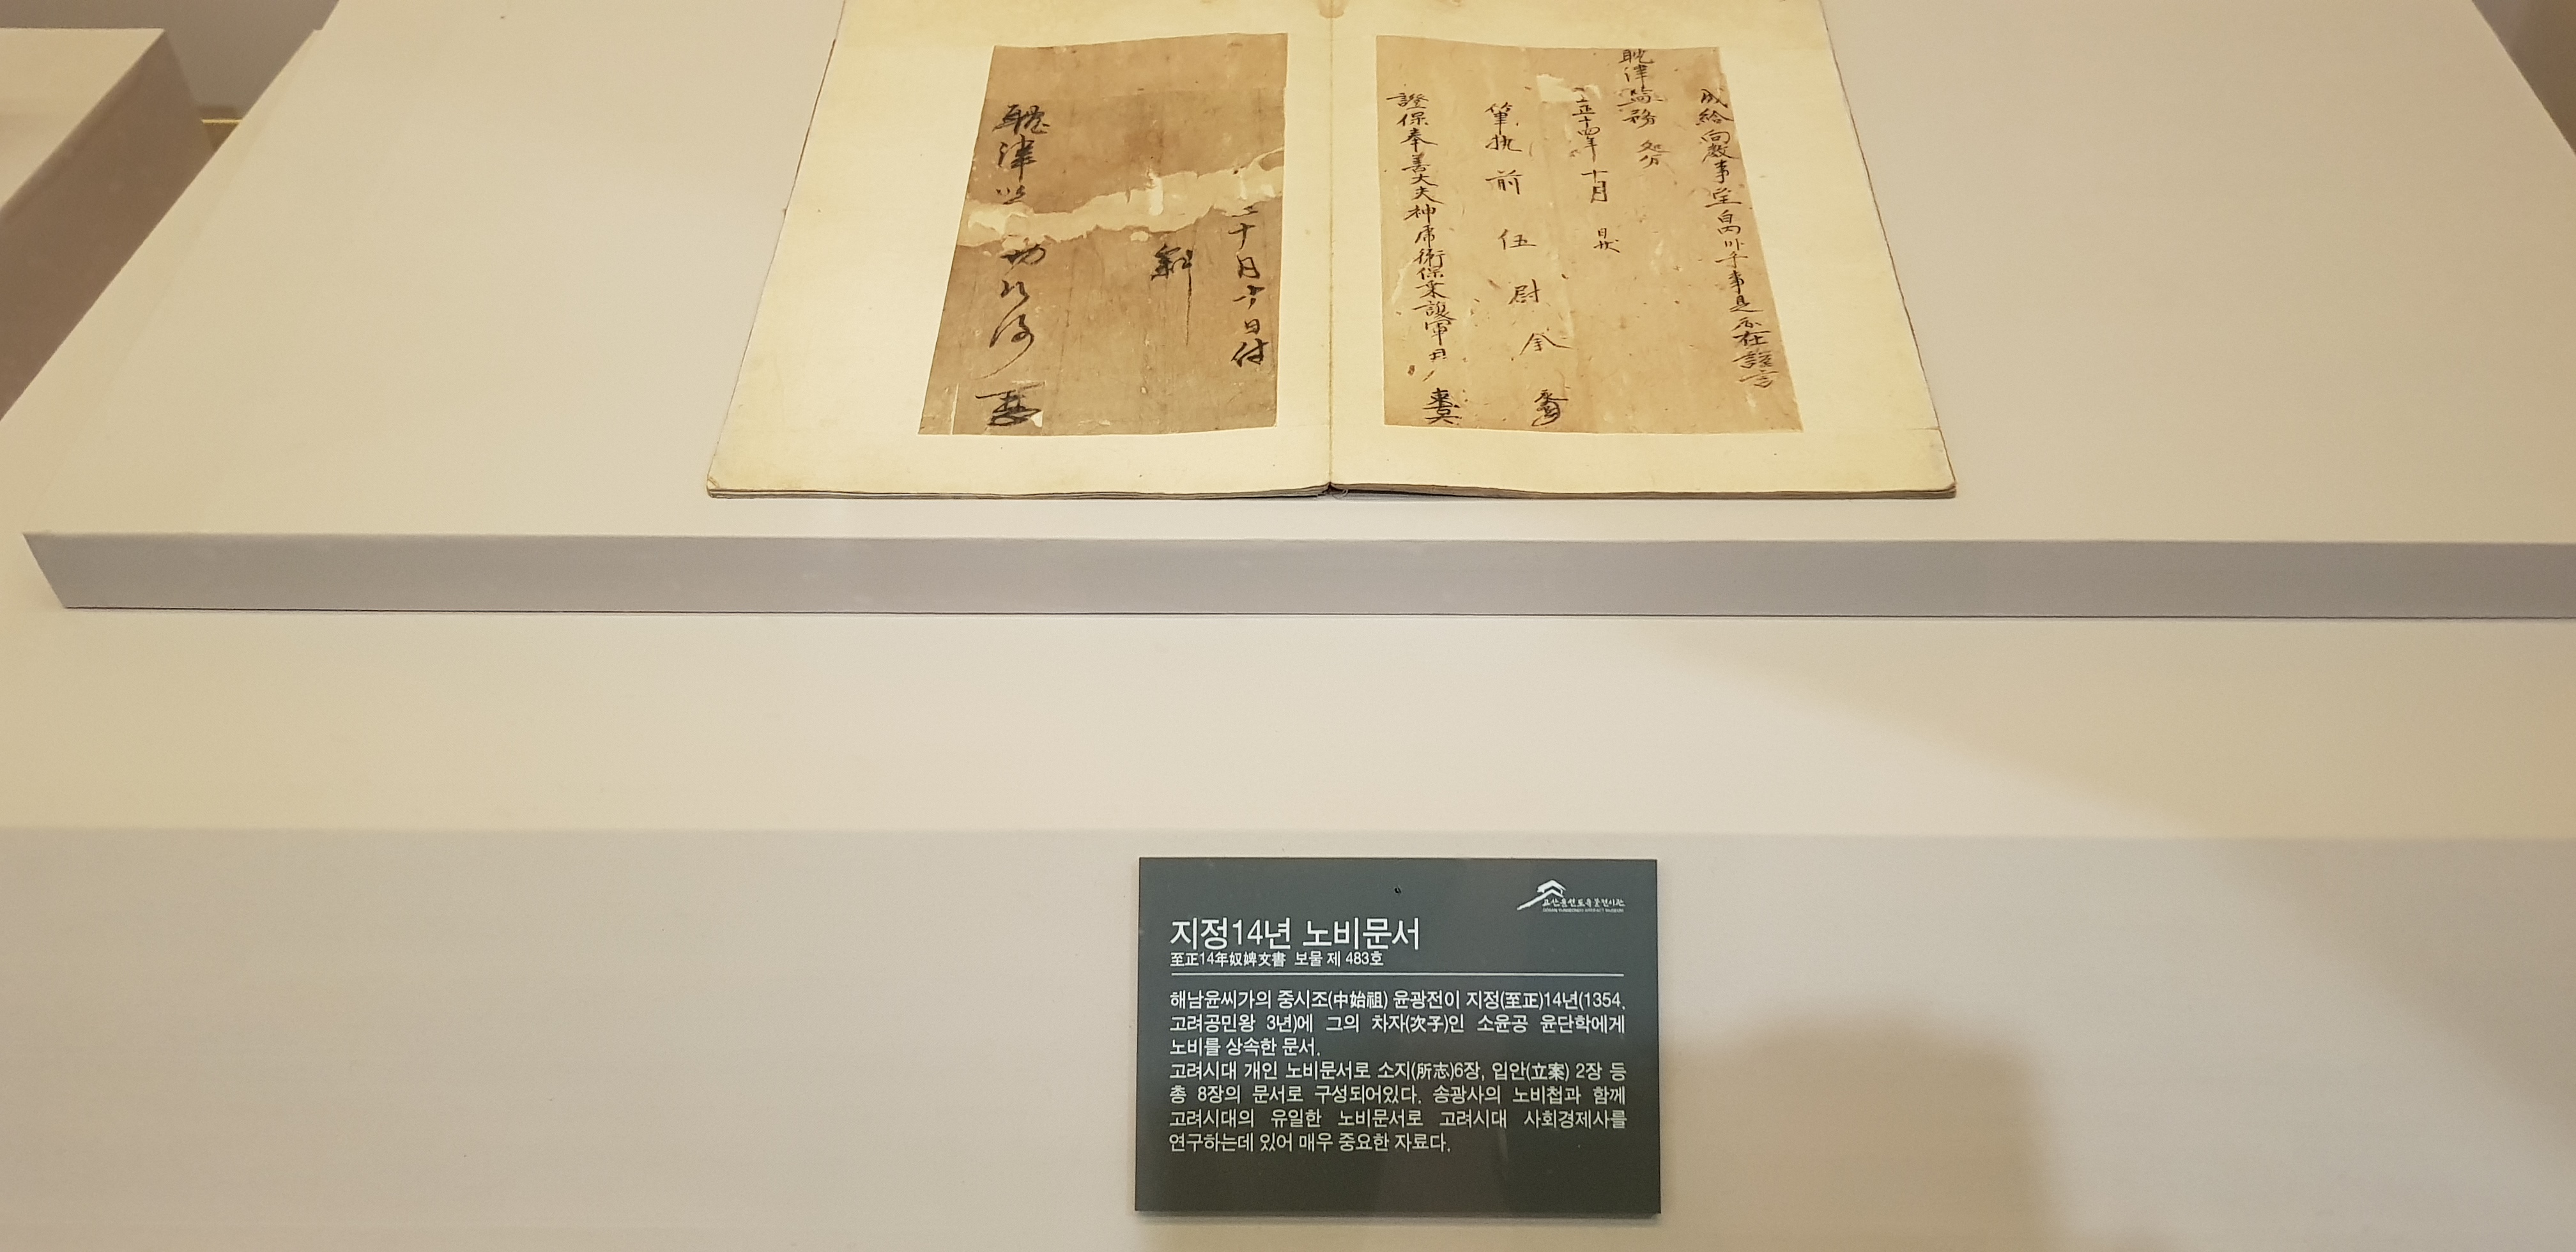 成給向教事望白內臥乎事是亦在謹言
耽津監務 処分
正十四年 十月 日狀
筆執 前 伍 尉 金
證保奉善大夫神虎衛保
護軍
十月 十 日付
斜
耽津
지정14년 노비문서
至正14年奴婢文書 보물 제 483호
고산윤선도유물전시관
해남윤씨가의 중시조(中始祖) 윤광전이 지정(至正)14년(1354,
고려공민왕 3년)에 그의 차자(次子)인 소윤공 윤단학에게
노비를 상속한 문서.
고려시대 개인 노비문서로 소지(所志)6장, 입안(立案) 2장 등
총 8장의 문서로 구성되어있다. 송광사의 노비첩과 함께
고려시대의 유일한 노비문서로 고려시대 사회경제사를
연구하는데 있어 매우 중요한 자료다.